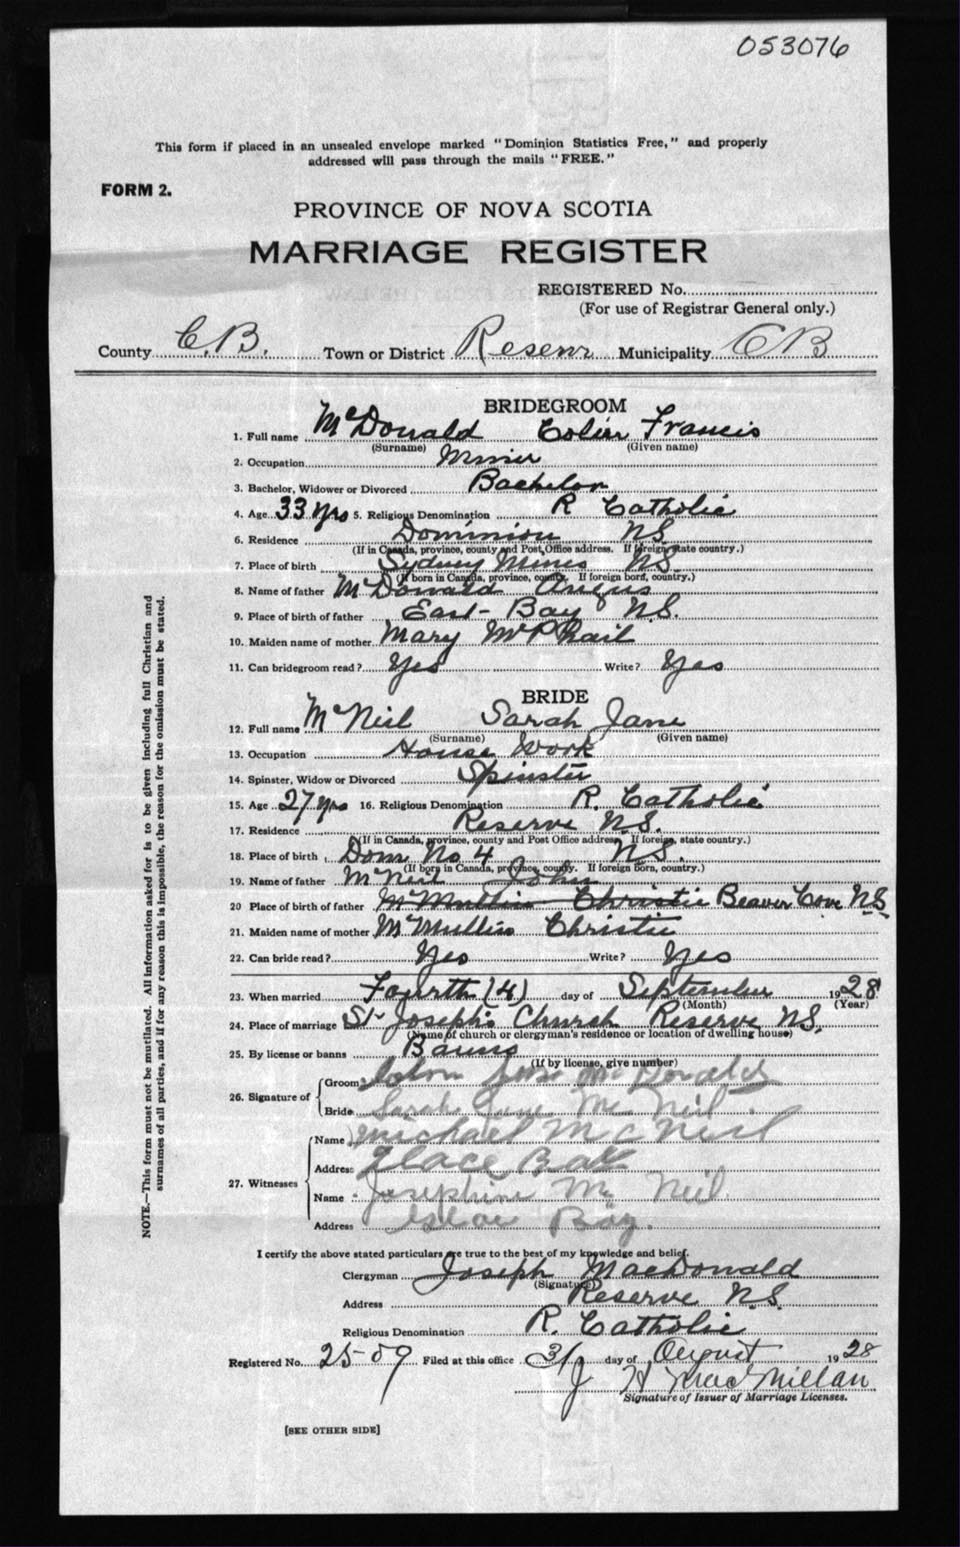 053076
This form if placed in an unsealed envelope marked "Dominion Statistics Free," and properly
addressed will pass through the mails "FREE."
FORM 2.
PROVINCE OF NOVA SCOTIA
MARRIAGE REGISTER
REGISTERED No.
(For use of Registrar General only.)
County C.B. Town or District Municipality CB
BRIDEGROOM
1. Full name McDonald Colin Francis
(Surname) (Given name)
2. Occupation Miner
3. Bachelor, Widower or Divorced Bachelor
4. Age 33 yrs 5. Religious Denomination R Catholic
6. Residence Dominion NS
(If in Canada, province, county and Post Office address. If foreign, state country.)
7. Place of birth Sydney Mines NS.
(If born in Canada, province, county. If foreign born, country.)
8. Name of father McDonald Angus
9. Place of birth of father East Bay N.S.
10. Maiden name of mother Mary McPhail
11. Can bridegroom read? Yes Write? Yes
BRIDE
12. Full name McNeil Sarah Jane
(Surname) (Given name)
13. Occupation House Work
14. Spinster, Widow or Divorced Spinster
15. Age 27 yrs 16. Religious Denomination R. Catholic
17. Residence Reserve N.S.
(If in Canada, province, county and Post Office address. If foreign, state country.)
18. Place of birth Dom No 4 N.S.
(If born in Canada, province, county. If foreign born, country.)
19. Name of father McNeil John
20 Place of birth of father McMullin Christie Beaver Cove N.S.
21. Maiden name of mother McMullin Christie
22. Can bride read? Yes Write? Yes
23. When married Fourth (4) day of September 1928
(Month) (Year)
24. Place of marriage St Joseph's Church Reserve N.S.
(Name of church or clergyman's residence or location of dwelling house)
25. By license or banns Banns
(If by license, give number)
26. Signature of
Groom McDonald
Bride Sarah Jane McNeil.
27. Witnesses
Name Michael McNeil
Address Glace Bay
Name Josephine McNeil
Address Glace Bay.
I certify the above stated particulars are true to the best of my knowledge and belief.
Clergyman Joseph MacDonald
(Signature)
Address Reserve N.S.
Religious Denomination R. Catholic
Registered No. 2509 Filed at this office 31 day of August 1928
J H MacMillan
Signature of Issuer of Marriage Licenses.
[SEE OTHER SIDE]
NOTE.—This form must not be mutilated. All information asked for is to be given including full Christian and
surnames of all parties, and if for any reason this is impossible, the reason for the omission must be stated.